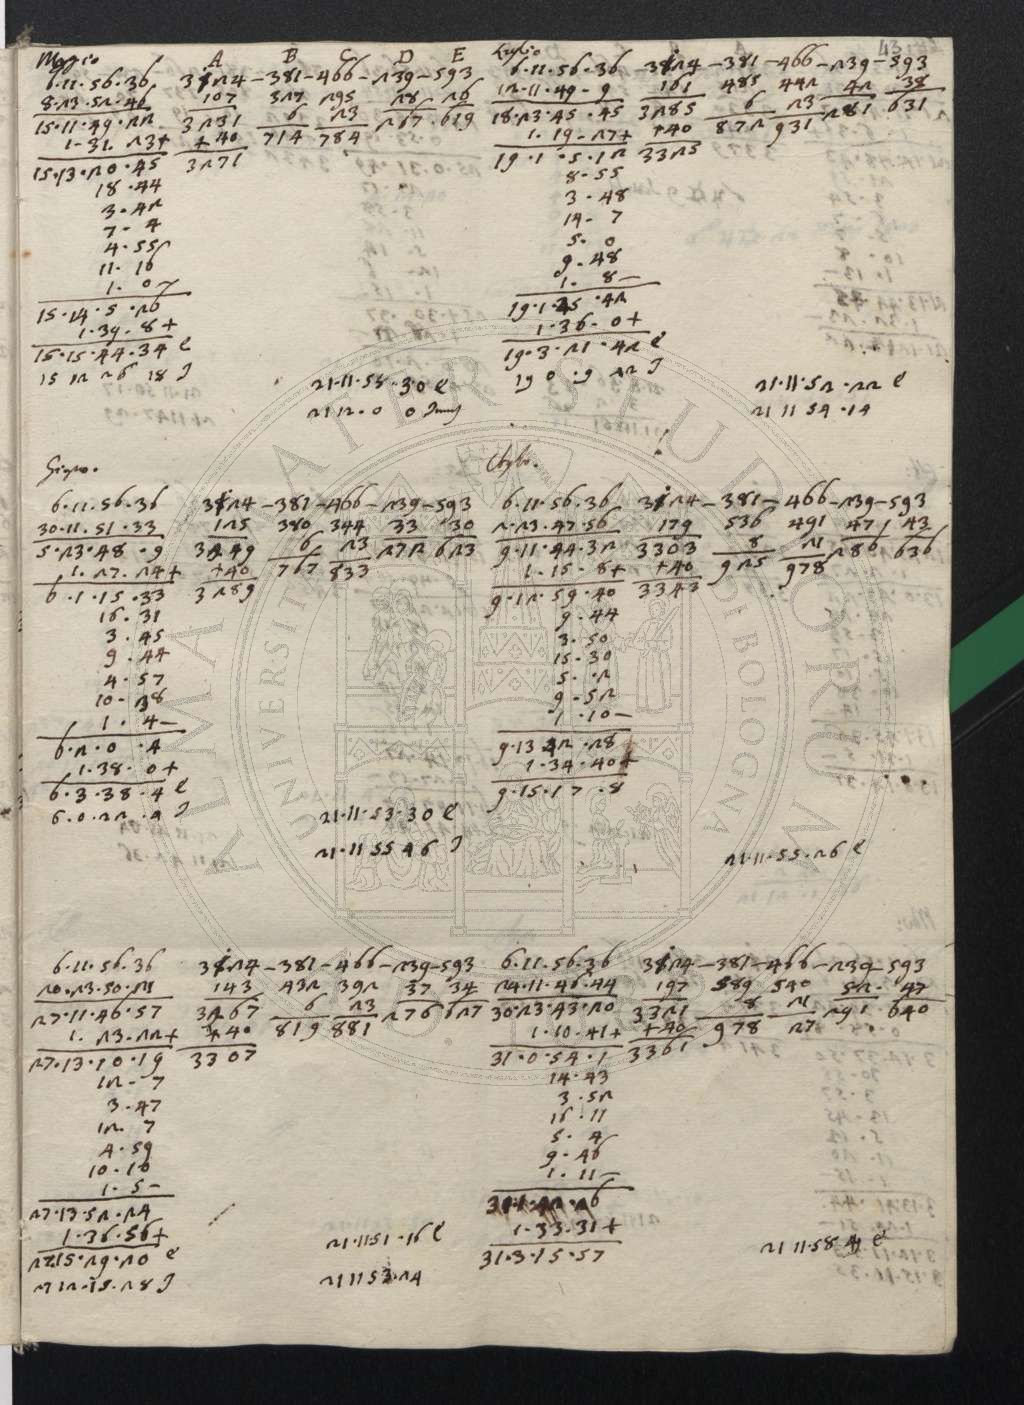 43
Maggio A B C D E
6.11.56.36 3124-381-466-239-593
8.23.52.46 107 327 295 28 26
15.11.49.22 3231 6 23 267.619
1.31.23+ +40 714 784
15.13.20.45 3271
18.44
3.42
7.4
4.55
11.16
1.0-
15.14.5.26
1.39.8+
15.15.44.34 e
15 12 26 18 J
21.11.58.30 e
21 12.0 0
Luglio
6.11.56.36 3124-381-466-239-593
12.11.49.9 161 485 442 42 38
18.23.45.45 3285 6 23 281 631
1.19.27+ +40 872 931
19.1.5.12 3325
8.55
3.48
14.7
5.0
9.48
1.8-
19.1.45.42
1.36.0+
19.3.21.42 e
19 0.9 42 J
21.11.52.22 e
21 11 54.14
Giugno.
6.11.56.36 3124-381-466-239-593
30.11.51.33 125 380 344 33 30
5.23.48.9 3249 6 23 272 623
1.27.24+ +40 767 833
6.1.15.33 3289
16.31
3.45
9.44
4.57
10.38
1.4-
6.2.0.4
1.38.0+
6.3.38.4 e
6.0.22.4 J
21.11.53.30 e
21.11 55 46 J
6.11.56.36 3124-381-466-239-593
2.23.47.56 179 536 491 47 43
9.11.44.32 3303 8 21 286 636
1.15.8+ +40 925 978
9.12.59.40 3343
9.44
3.50
15.30
5.2
9.52
1.10-
9.13 42.28
1.34.40+
9.15.17.8
21.11.55.26 e
6.11.56.36 3124-381-466-239-593
20.23.50.21 143 432 392 37 34
27.11.46.57 3267 6 23 276 627
1.23.22+ +40 819 881
27.13.10.19 3307
12.7
3.47
12.7
4.59
10.10
1.5-
27.13.52.24
1.36.56+
27.15.29.20 e
27 12.15.28 J
21.11 51.16 e
21 11 53.24
6.11.56.36 3124-381-466-239-593
24.11.46.44 197 589 540 52 47
30.23.43.20 3321 8 21 291 640
1.10.41+ +40 978 27
31.0.54.1 3361
14.43
3.52
16.11
5.4
9.46
1.11-
31.1.42.26
1.33.31+
31.3.15.57
21 11.58 41 e
ALMA MATER STUDIORUM
UNIVERSITÀ DI BOLOGNA